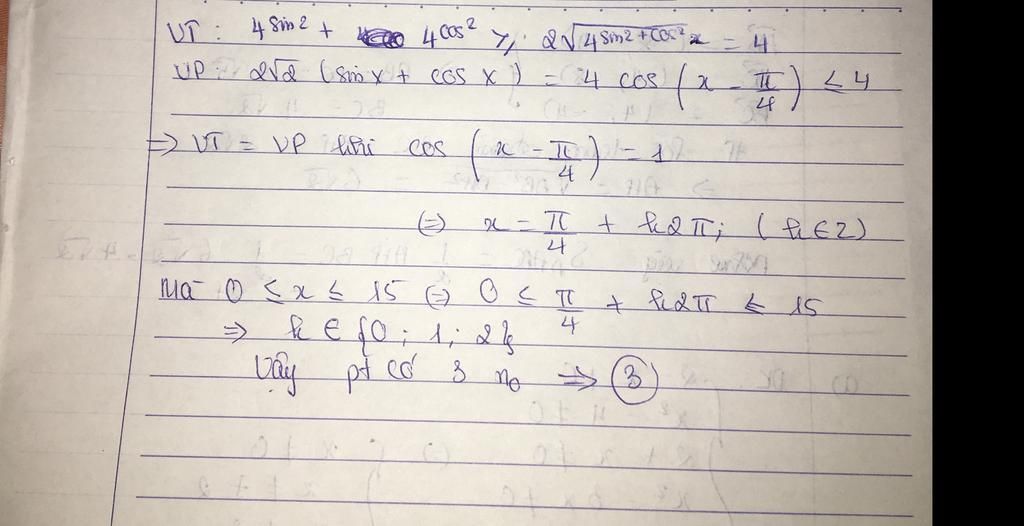 VT: 4^sin2 + 4^cos² ⩾ 2√4^sin2+cos²x = 4
VP: 2√2 (sin x + cos x) = 4 cos (x - π/4) ≤ 4
=> VT = VP khi cos (x - π/4) = 1
(=) x = π/4 + k2π; (k ∈ Z)
Mà 0 ≤ x ≤ 15 (=) 0 ≤ π/4 + k2π ≤ 15
=> k ∈ {0; 1; 2}
Vậy pt có 3 no => 3